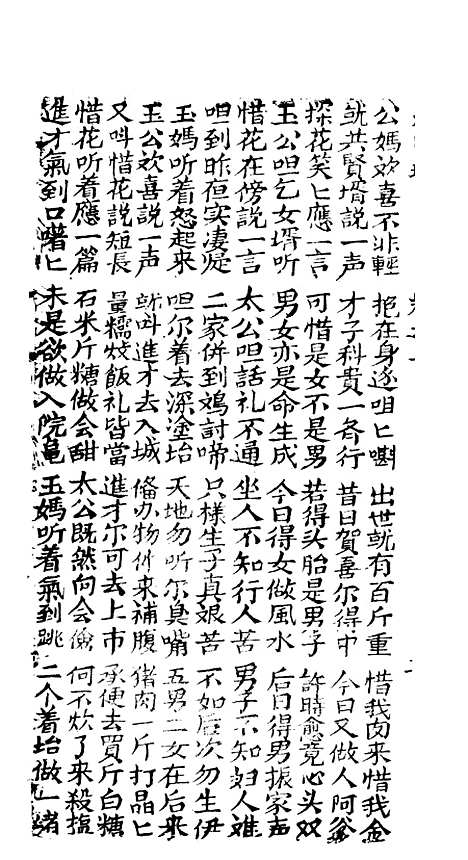 公媽欢喜不非輕 抱在身边咀匕㗂 出世就有百斤重 惜我肉来惜我金
就共賢壻説一声 才子科貴一各行 昔日賀喜尔得中 今日又做人阿爹
探花笑匕應一言 可惜是女不是男 若得头胎是男子 許時愈竟心头双
玉公呾乞女壻听 男女亦是命生成 今日得女做風水 后日得男振家声
惜花在傍説一言 太公呾話礼不通 坐人不知行人苦 男子不知妇人难
呾到昨夜实凄凝 二家併到鴉討啼 只様生子真艰苦 不如后次勿生伊
玉媽听着怒起来 呾尔着去深塗坮 天地勿听尔臭嘴 五男二女在后来
玉公欢喜説一声 就叫進才去入城 俻办物件来補腹 猪肉一斤打晶匕
又叫惜花説短長 量糯炆飯礼皆當 進才尔可去上市 承便去買斤白糖
惜花听着應一篇 石米斤糖做会甜 太公既然向会儉 何不炊了来殺塩
進才氣到口嗜匕 未是欲做入院亀 玉媽听着氣到跳 二个着坮做一堵